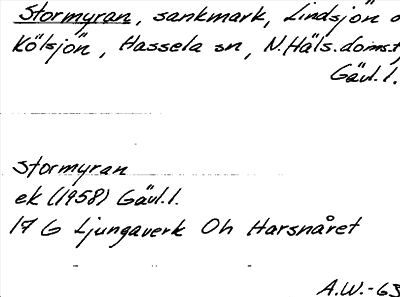 Stormyran, sankmark, Lindsjön o
Kölsjön, Hassela sn, N. Häls. doms.,
Gävl. l.
Stormyran
ek (1958) Gävl. l.
17 G Ljungaverk Oh Harsnåret
A.W.-63